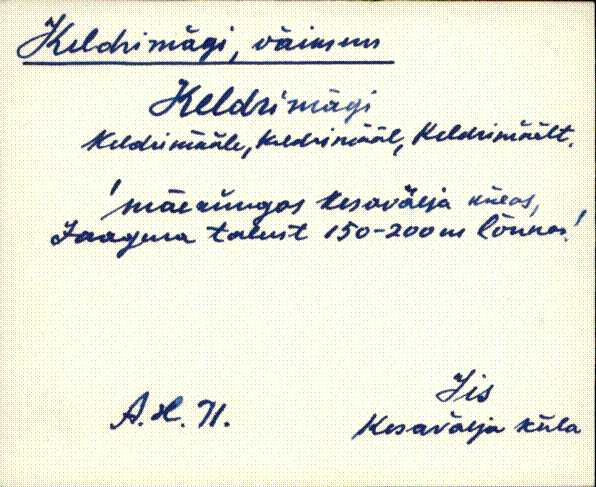 Keldrimägi, väiksem
Keldrimägi
Keldrimääle, Keldrimääl, Keldrimäält.
'mäerüngas Kesavälja külas,
Jaagma talust 150-200 m lõunas.'
A. H. 71.
Iis
Kesavälja küla